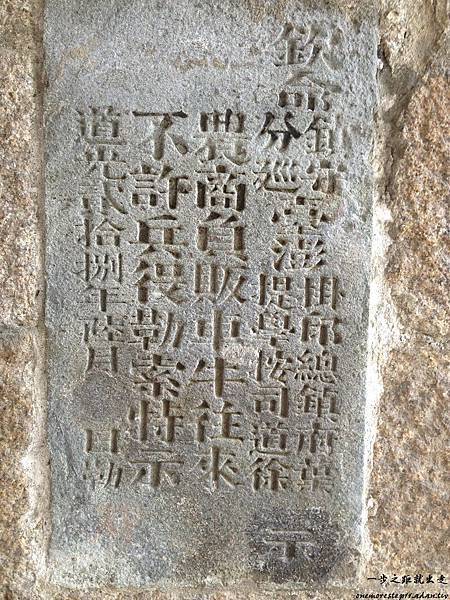 欽命鎮守分巡臺澎掛印總鎮府葉提學按司道徐 示
農商負販車牛往來
不許兵役勒索特示
道光貳拾捌年陸月 日勒
一步之距就出走